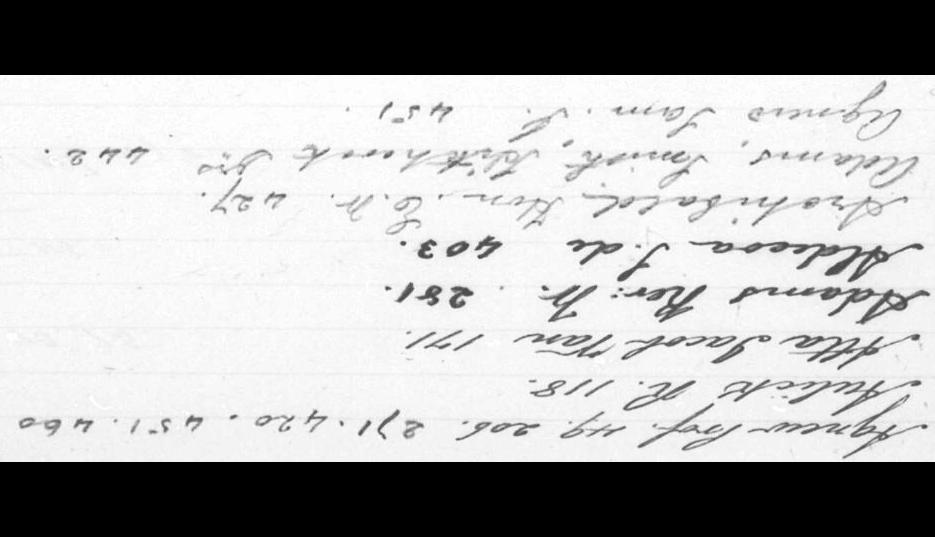 Agnew Prof. 49. 206. 271. 420. 451. 460
Aulick R. 118.
Alta Jacob Van 171.
Adams Rev: W. 281.
Aldecoa J. de 403.
Archibald, Hon. E. W. 427.
Adams, Smith, Kirkwood &co 442.
Agnew Sam. L. 451.